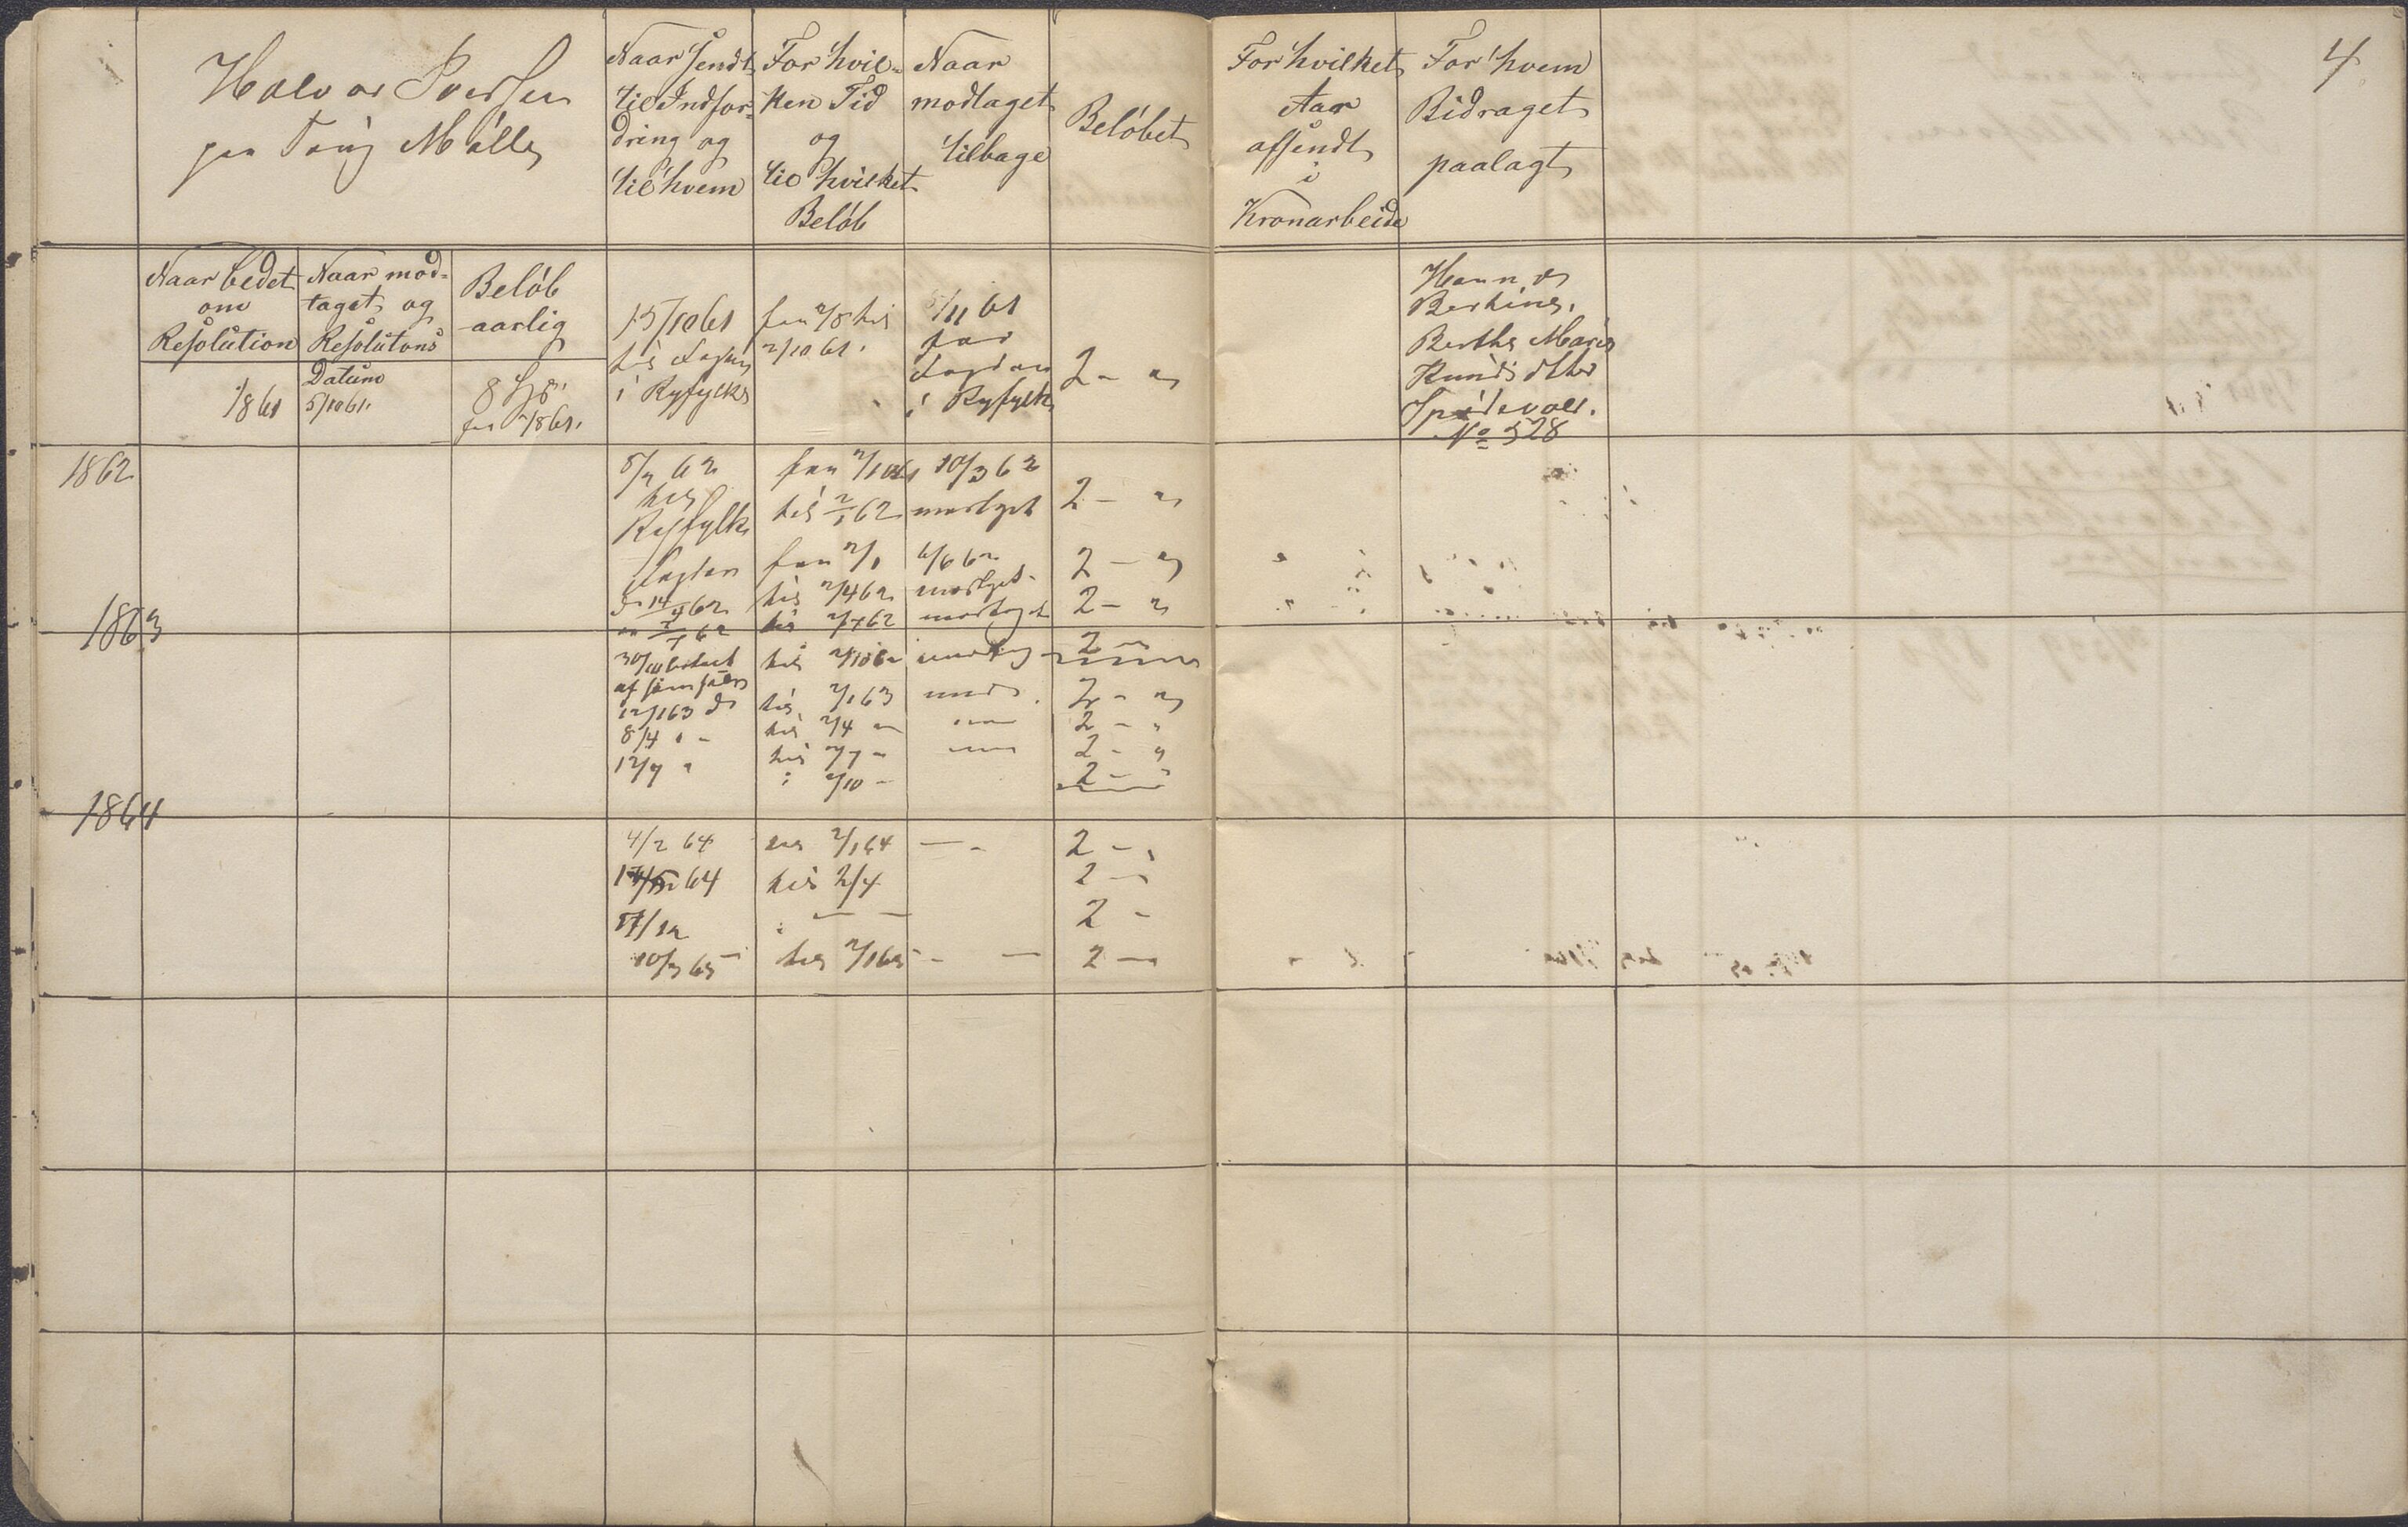 4
Halvor Iversen
paa Toug Mølle
Naar sendt
til Indfor-
dring og
til hvem
For hvil-
ken Tid
og
til hvilket
Beløb
Naar
modtaget
tilbage
Beløbet
For hvilket
Aar
afsendt
i
Kronarbeide
For hvem
Bidraget
paalagt
Naar bedet
om
Resolution
Naar mod-
taget og
Resolutons
Datum
Beløb
aarlig
/8 61
5/10 61.
8
fra 2/8 61.
15/10 61
til Fogden
i Ryfylke
fra 2/8 til
2/10 61.
5/11 61
fra
Fogden
i Ryfylke
2 - "
Hanna
Bertine,
Berthe Marie
Knudsdtter
Spødevold.
No 328
1862
8/2 62
til
Ryfylke
fra 2/10 61
til 2/1 62
10/3 62
modtget
2 - "
Fogden
d 14/4 62
fra 2/1
til 2/4 62
6/6 62
modtget
2 - "
2/7 62
til 2/7 62
modtaget
2 - "
1863
30/10
af
til 2/10 62
2 "
12/1 63 d
til 2/1 63
2 - "
8/4 " -
til 2/4 -
2 - "
12/7 "
til 2/7 -
2 - "
2/10 -
2 - "
1864
4/2 64
2/1 64
2 - "
64
til 2/4
2 - "
17/12
2 -
10/3 65
til 2/1 65
2 -